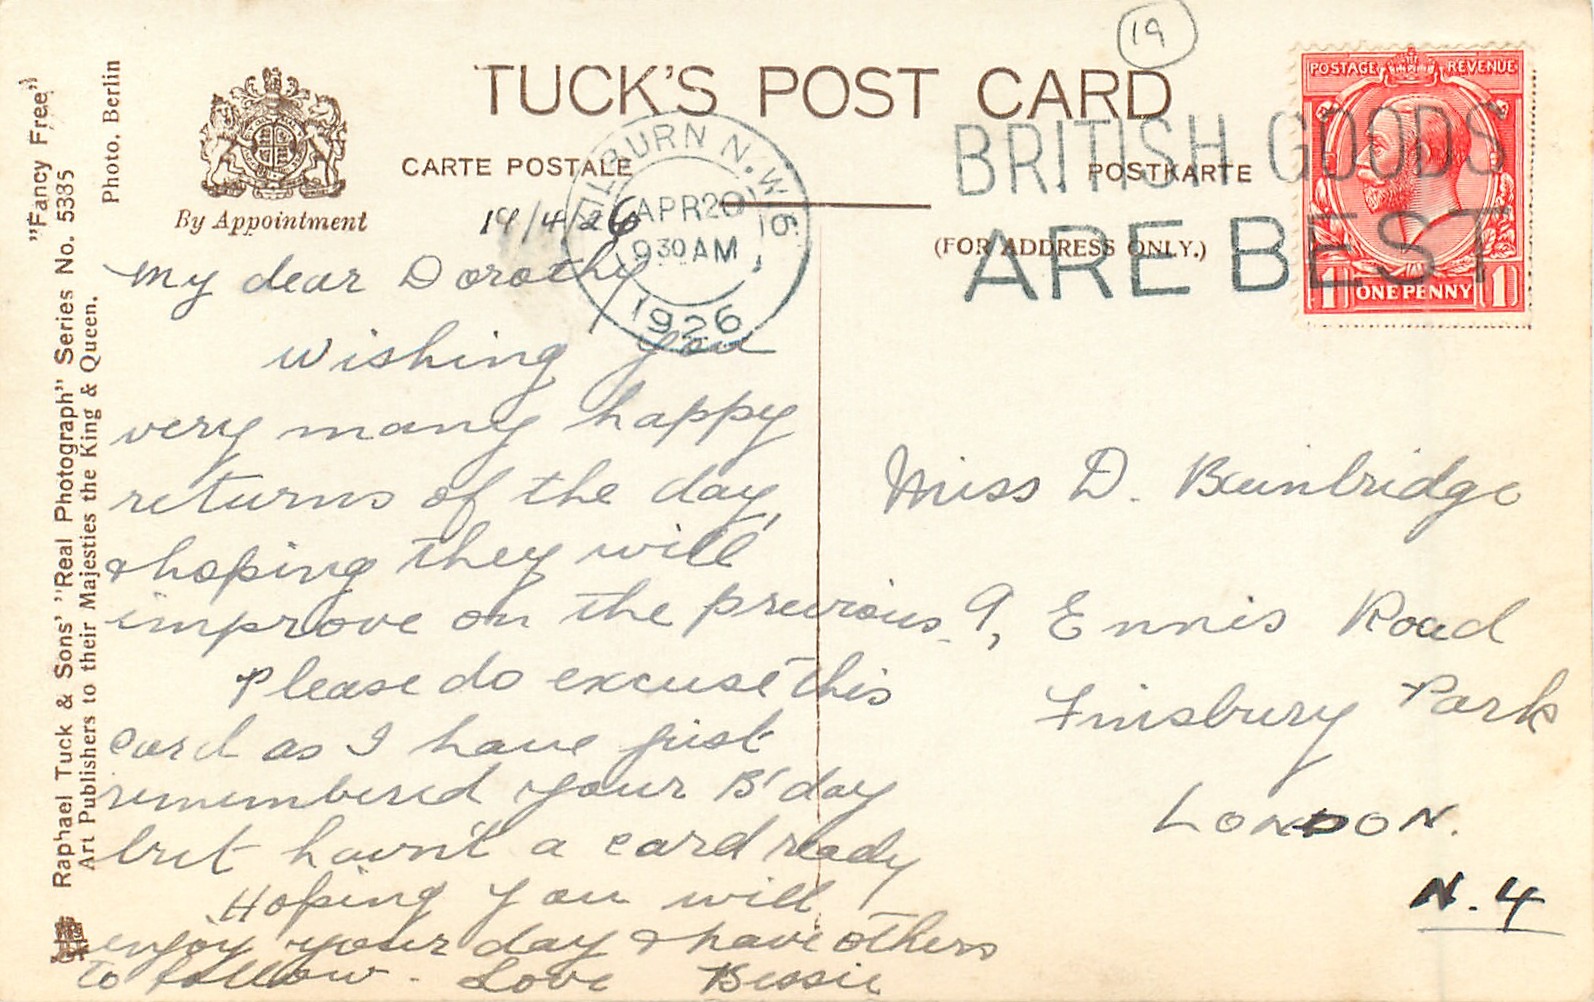 19
TUCK'S POST CARD
CARTE POSTALE
POSTKARTE
(FOR ADDRESS ONLY.)
By Appointment
POSTAGE REVENUE
ONE PENNY
1 1
KILBURN N.W.6
APR 20
9 30 AM
1926
BRITISH GOODS
ARE BEST
"Fancy Free"
Photo. Berlin
Raphael Tuck & Sons' "Real Photograph" Series No. 5385
Art Publishers to their Majesties the King & Queen.
19/4/26
My dear Dorothy
Wishing you
very many happy
returns of the day,
& hoping they will
improve on the previous.
Please do excuse this
card as I have just
remembered your B'day
but havn't a card ready
Hoping you will
enjoy your day & have others
to follow. Love Bessie
Miss D. Bainbridge
9, Ennis Road
Finsbury Park
LONDON.
N.4